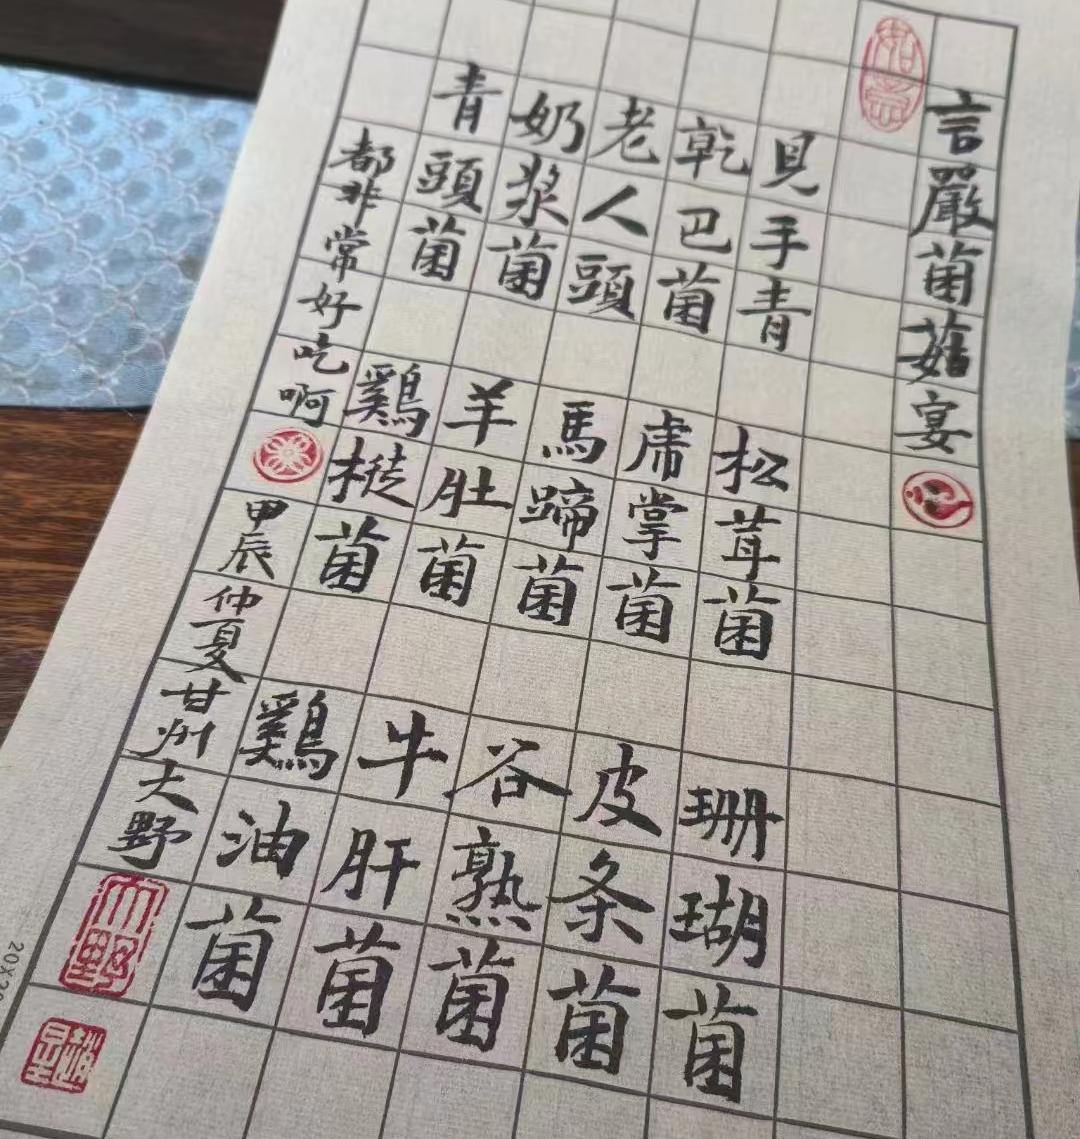 言嚴菌菇宴
見手青 松茸菌 珊瑚菌
乾巴菌 虎掌菌 皮条菌
老人頭 馬蹄菌 谷熟菌
奶浆菌 羊肚菌 牛肝菌
青頭菌 鷄㙡菌 鷄油菌
都非常好吃啊 甲辰仲夏甘州大野
大野
20X20